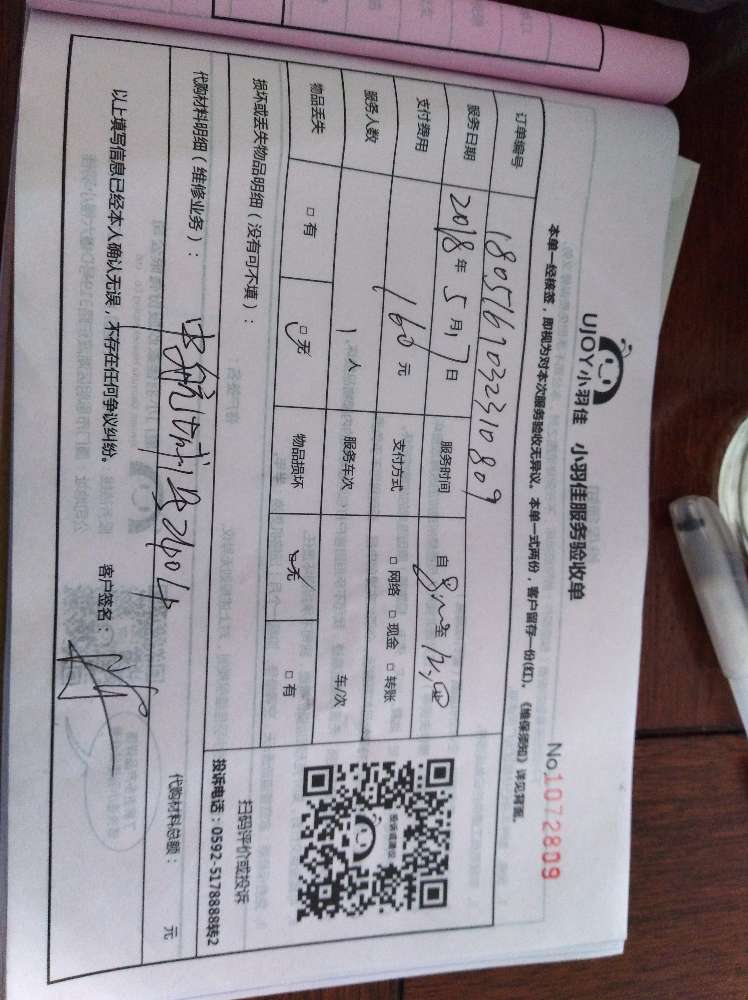 UJOY小羽佳 小羽佳服务验收单
No.1072809
本单一经核签，即视为对本次服务验收无异议。本单一式两份，客户留存一份(红)。《维保须知》详见背面。
订单编号 1805161032310809
服务日期 2018年5月17日 服务时间 自8:00至12:00
支付费用 160元 支付方式 □网络 □现金 □转账
服务人数 1人 服务车次 车/次
物品丢失 □有 □无 物品损坏 □无 □有
损坏或丢失物品明细（没有可不填）：
扫码评价或投诉
投诉电话：0592-5178888转2
代购材料明细（维修业务）：
代购材料总额： 元
以上填写信息已经本人确认无误，不存在任何争议纠纷。 客户签名：